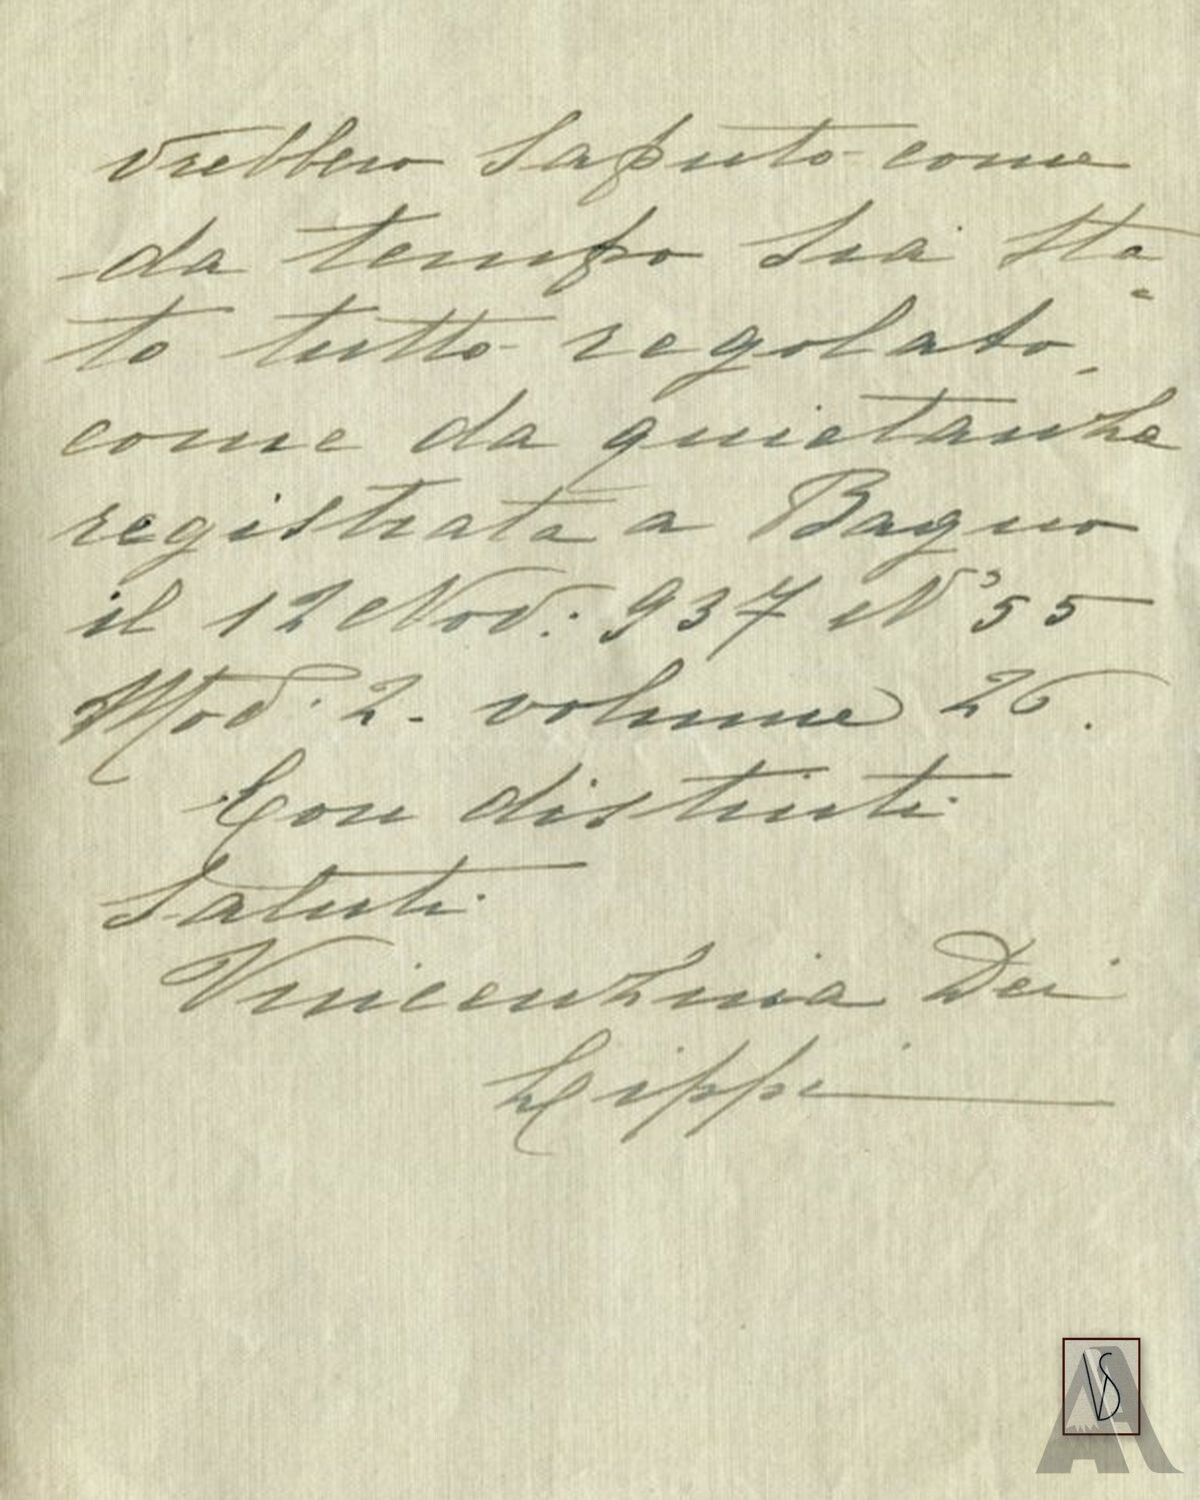 vrebbero saputo come
da tempo sia sta=
to tutto regolato,
come da quietanza
registrata a Bagno
il 12 Nov: 937 N° 55
Mod. 2. volume 26.
Con distinti
saluti
Vincenzina Dei
Lippi